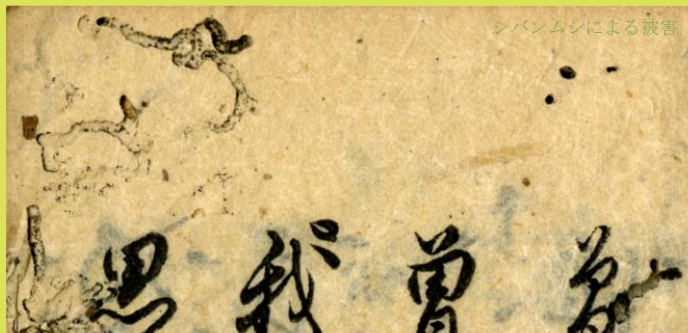 シバンムシによる被害
曽
我
思